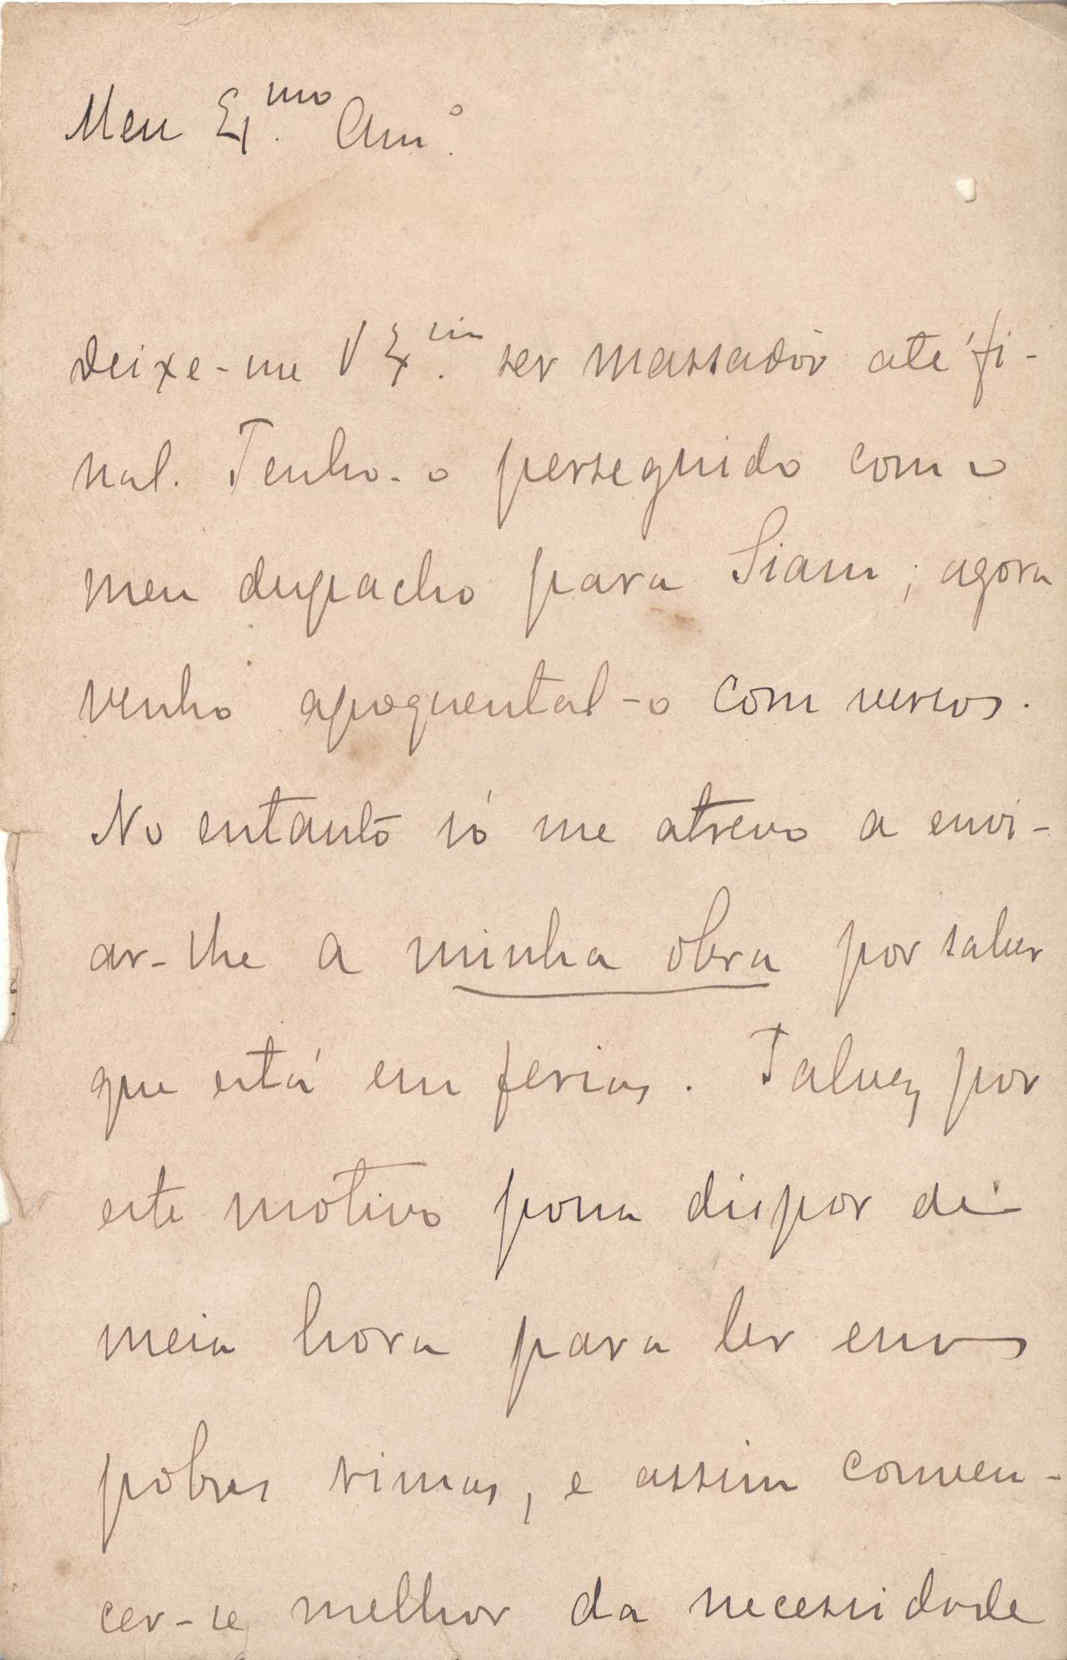 Meu Ex.mo Am.o
Deixe-me V Ex.cia ser massador até fi-
nal. Tenho-o perseguido com o
meu despacho para Siam; agora
venho apoquental-o com versos.
No entanto só me atrevo a envi-
ar-lhe a minha obra por saber
que está em ferias. Talvez por
este motivo possa dispor de
meia hora para ler essas
pobres rimas, e assim conven-
cer-se melhor da necessidade